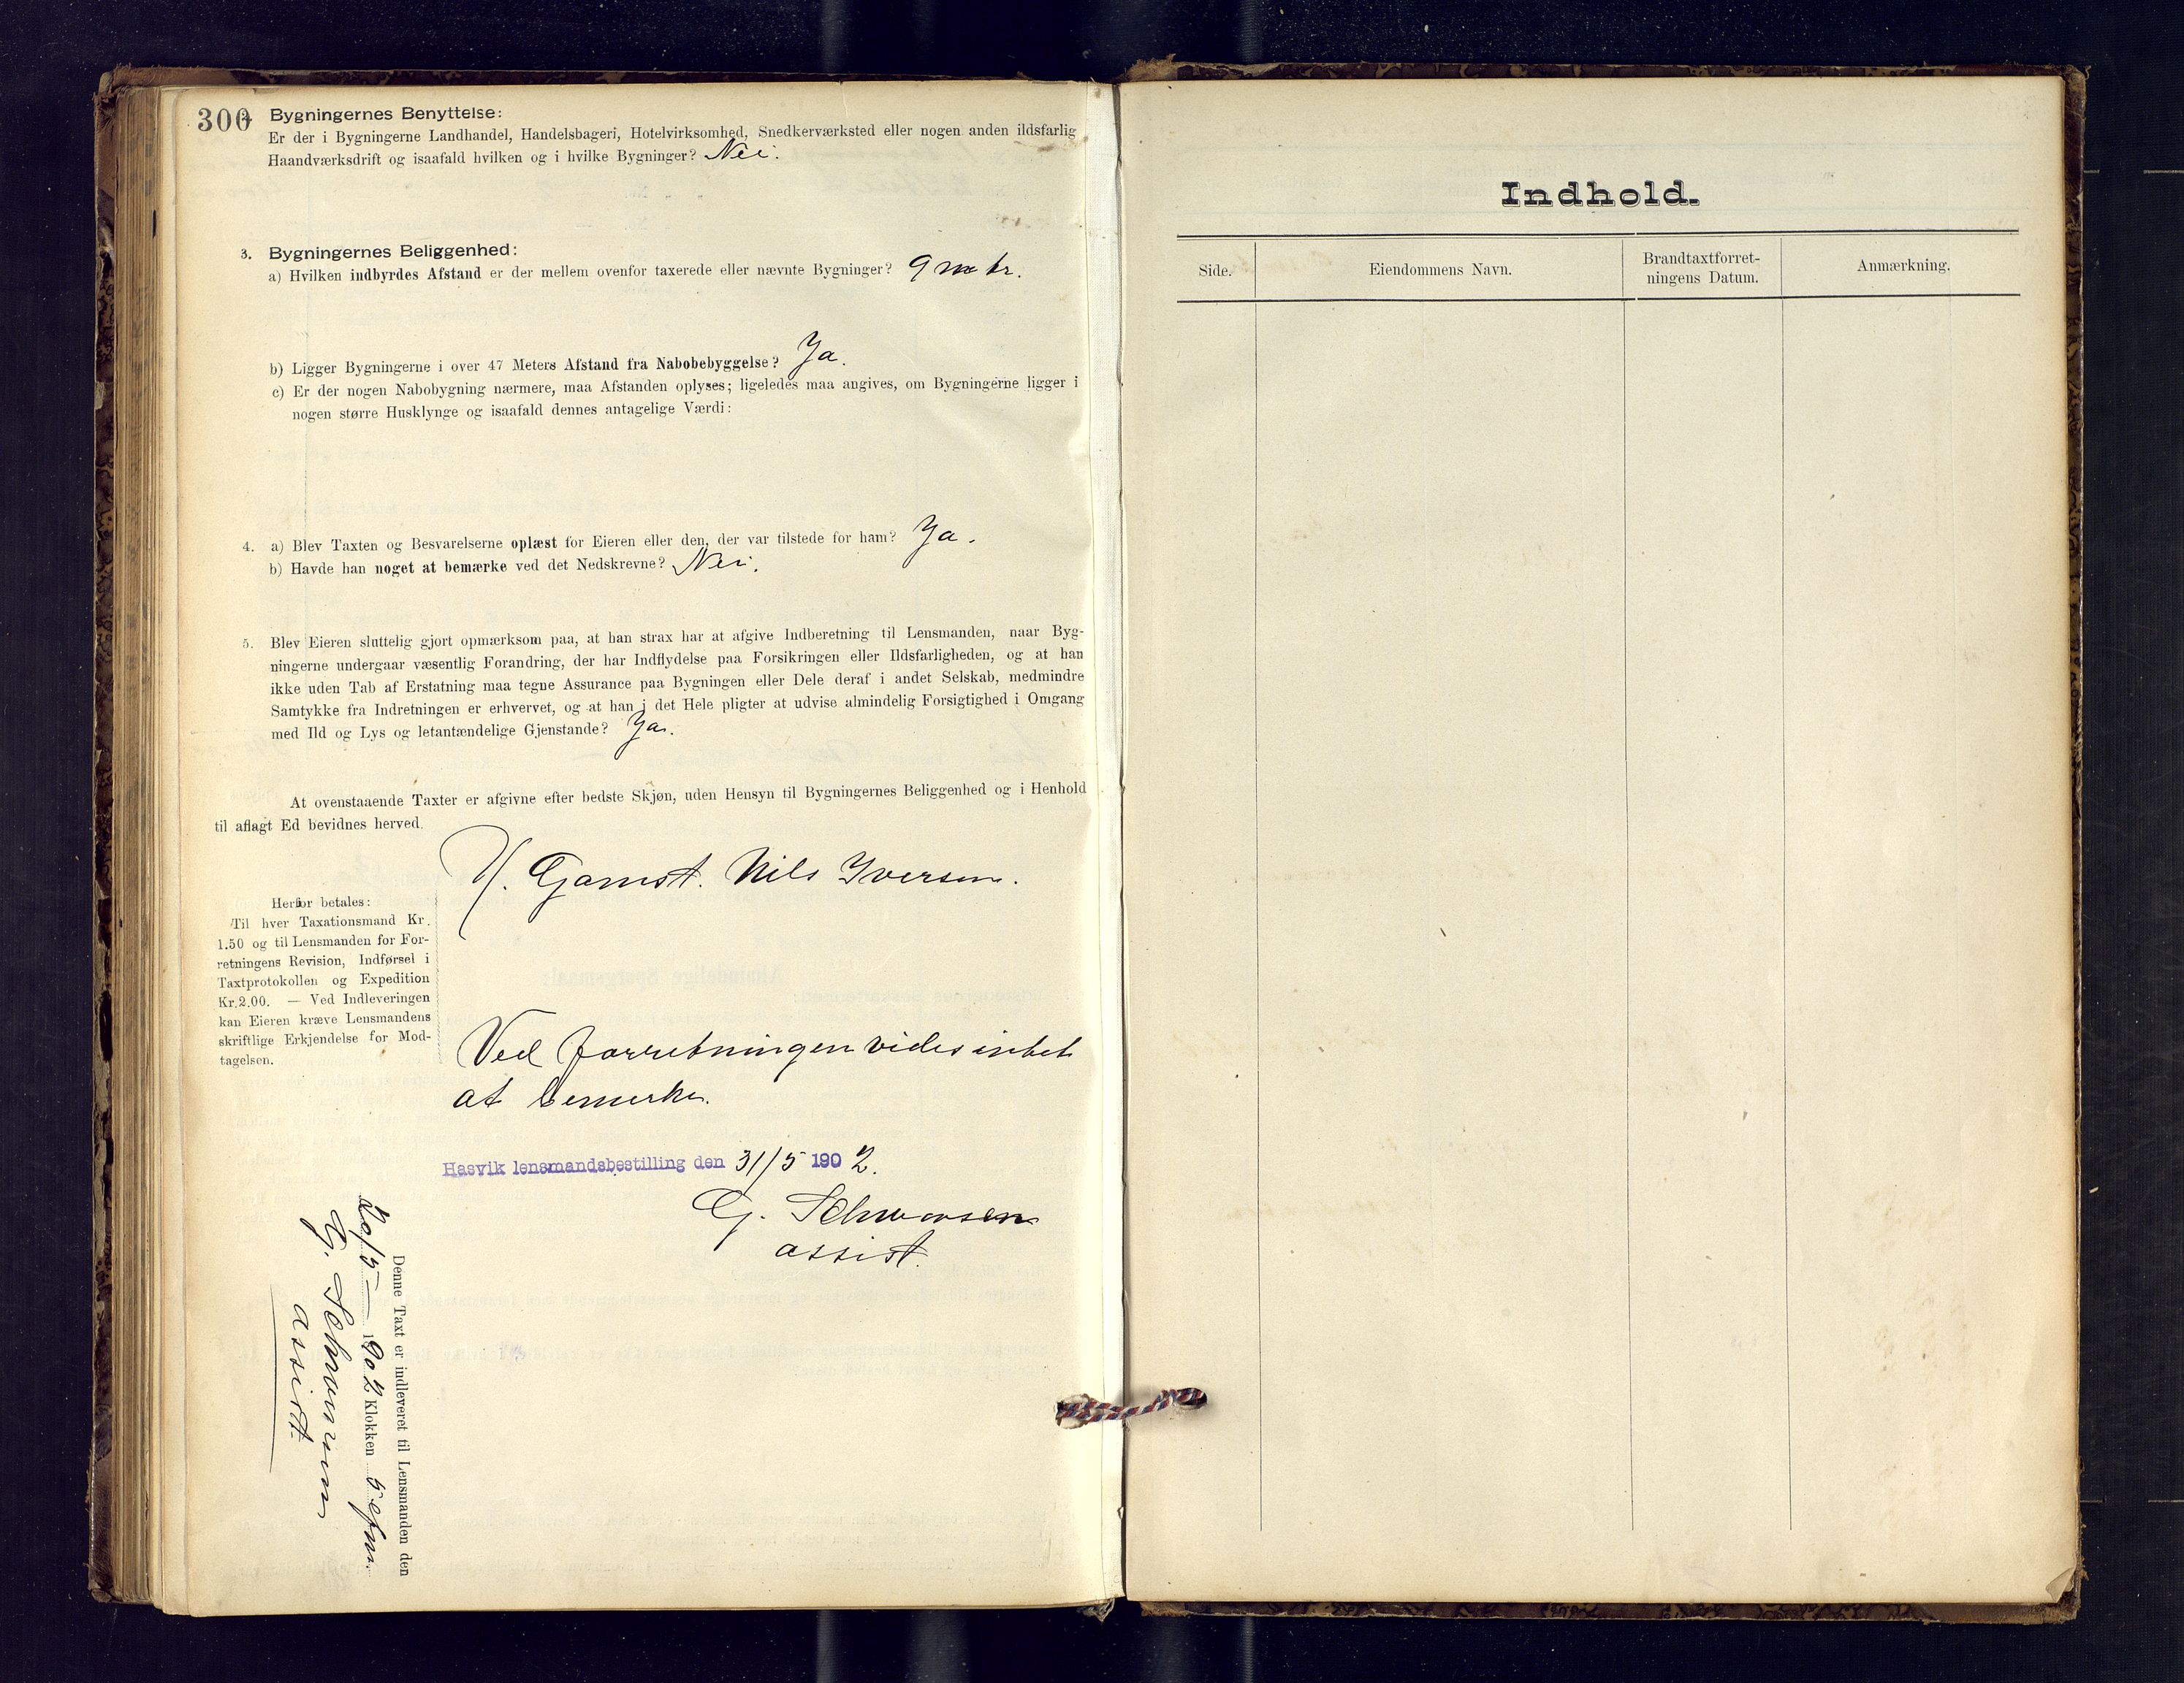 300
2. Bygningernes Benyttelse:
Er der i Bygningerne Landhandel, Handelsbageri, Hotelvirksomhed, Snedkerværksted eller nogen anden ildsfarlig
Haandværksdrift og isaafald hvilken og i hvilke Bygninger? Nei.
3. Bygningernes Beliggenhed:
a) Hvilken indbyrdes Afstand er der mellem ovenfor taxerede eller nævnte Bygninger? 9 mtr.
b) Ligger Bygningerne i over 47 Meters Afstand fra Nabobebyggelse? Ja.
c) Er der nogen Nabobygning nærmere, maa Afstanden oplyses; ligeledes maa angives, om Bygningerne ligger i
nogen større Husklynge og isaafald dennes antagelige Værdi:
4. a) Blev Taxten og Besvarelserne oplæst for Eieren eller den, der var tilstede for ham? Ja.
b) Havde han noget at bemærke ved det Nedskrevne? Nei.
5. Blev Eieren sluttelig gjort opmærksom paa, at han strax har at afgive Indberetning til Lensmanden, naar Byg-
ningerne undergaar væsentlig Forandring, der har Indflydelse paa Forsikringen eller Ildsfarligheden, og at han
ikke uden Tab af Erstatning maa tegne Assurance paa Bygningen eller Dele deraf i andet Selskab, medmindre
Samtykke fra Indretningen er erhvervet, og at han i det Hele pligter at udvise almindelig Forsigtighed i Omgang
med Ild og Lys og letantændelige Gjenstande? Ja.
At ovenstaaende Taxter er afgivne efter bedste Skjøn, uden Hensyn til Bygningernes Beliggenhed og i Henhold
til aflagt Ed bevidnes herved.
H. Gamst. Nils Iversen.
Herfor betales:
Til hver Taxationsmand Kr.
1.50 og til Lensmanden for For-
retningens Revision, Indførsel i
Taxtprotokollen og Expedition
Kr. 2.00. — Ved Indleveringen
kan Eieren kræve Lensmandens
skriftlige Erkjendelse for Mod-
tagelsen.
Ved forretningen vides intet
at bemerke.
Hasvik lensmandsbestilling den 31/5 1902.
G.
assist.
Denne Taxt er indleveret til Lensmanden den
20/5 — 1902 Klokken 5 efm.
G.
assist.
Indhold.
Side.
Eiendommens Navn.
Brandtaxtforret-
ningens Datum.
Anmærkning.